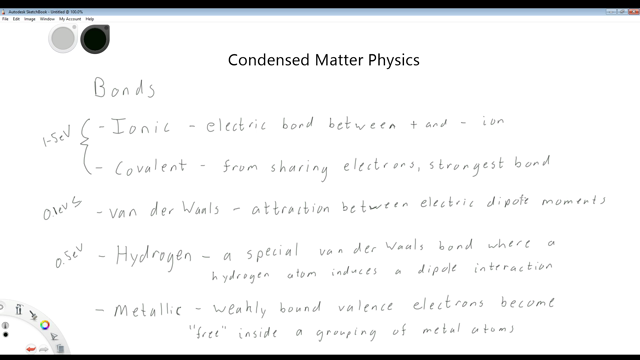 Autodesk SketchBook - Untitled @ 100.0%
File Edit Image Window My Account Help
Condensed Matter Physics
Bonds
1-5eV { - Ionic - electric bond between + and - ion
- Covalent - from sharing electrons, strongest bond
- van der Waals - attraction between electric dipole moments
0.5eV - Hydrogen - a special van der Waals bond where a
hydrogen atom induces a dipole interaction
- Metallic - weakly bound valence electrons become
"free" inside a grouping of metal atoms